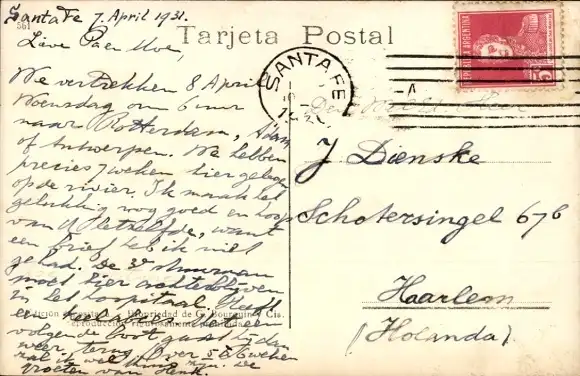 Santa Fe 7 April 1931.
Tarjeta Postal
Lieve Pa en Moe,
We vertrekken 8 April
Woensdag om 6 uur
naar Rotterdam, Adam
of Antwerpen. We hebben
precies 7 weken hier gelegen
op de rivier. Ik maak het
gelukkig nog goed en hoop
van U hetzelfde, want
een brief heb ik niet
gehad. De 3e stuurman
moet hier achterblijven
in het hospitaal. Heeft
een
volgende boot gaat hij dan
weer terug. Over 5 à 6 weken
zal ik wel thuis zijn. De
groeten van Henk.
Propiedad de G. Bourquin y Cia.
SANTA FE
REPUBLICA ARGENTINA
Den Heer
J Dienske
Schotersingel 67b
Haarlem
(Holanda)